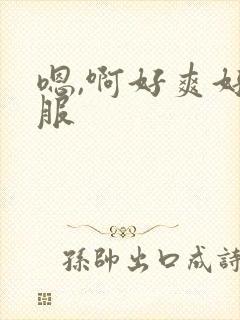 嗯,啊好爽好
服
孫帥出口成詩